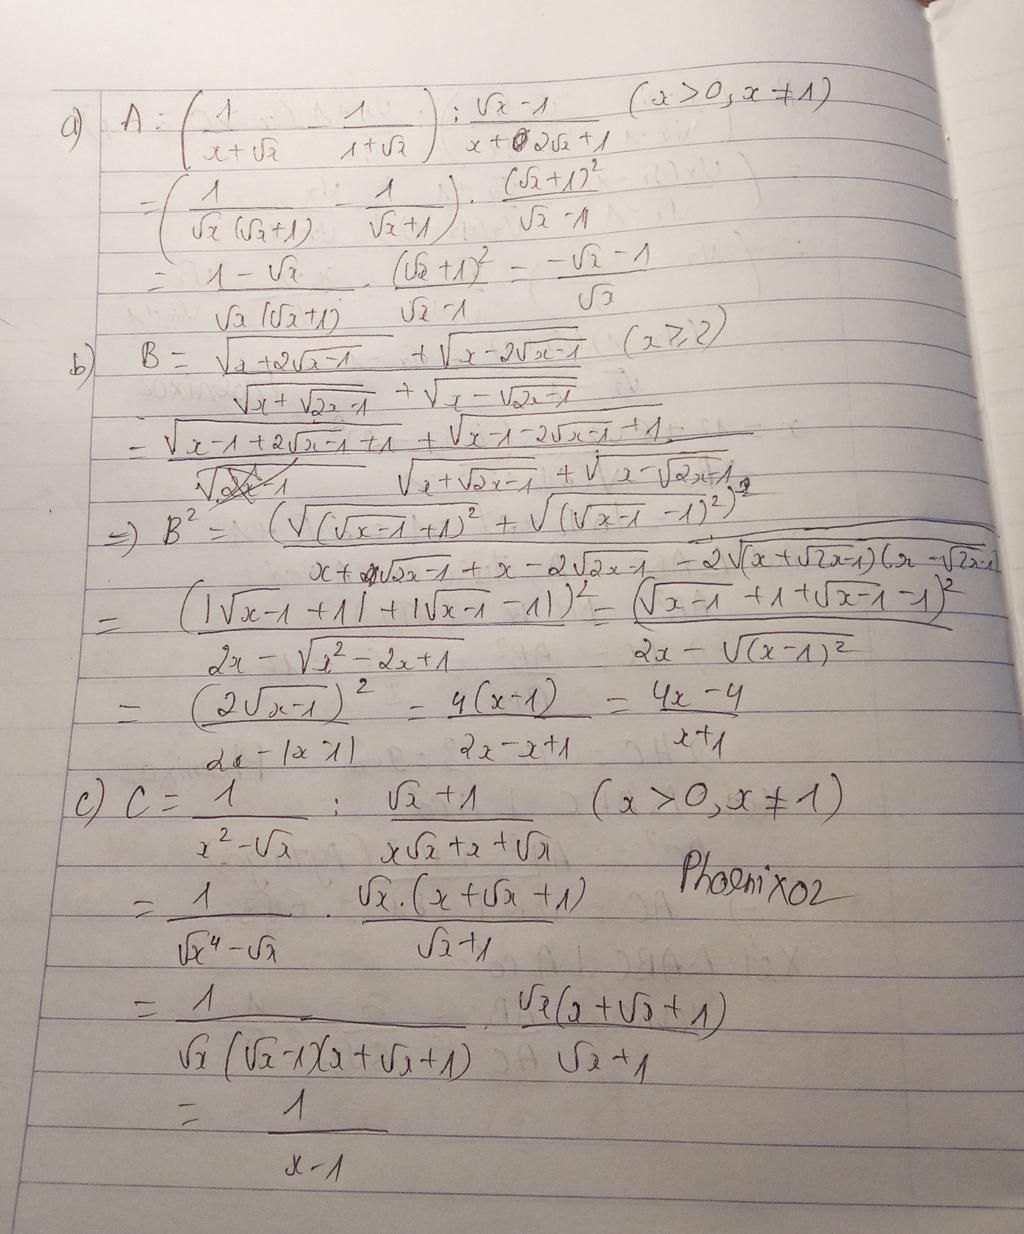 a) A = (1/(x+√x) - 1/(1+√x)) : (√x -1)/(x+2√x+1) (x>0, x≠1)
= (1/(√x(√x+1)) - 1/(√x+1)) . (√x+1)²/(√x -1)
= (1-√x)/(√x(√x+1)) . (√x+1)²/(√x-1) = (-√x -1)/√x
b) B = (√(x+2√(x-1)) + √(x-2√(x-1)))/(√(x+√(2x-1)) + √(x-√(2x-1))) (x≥2)
= (√(x-1+2√(x-1)+1) + √(x-1-2√(x-1)+1))/(√(x+√(2x-1)) + √(x-√(2x-1)))
=> B² = (√((√(x-1)+1)²) + √((√(x-1)-1)²))²/(x+√(2x-1) + x-2√(2x-1) - 2√((x+√(2x-1))(x-√(2x-1))))
= (|√(x-1)+1| + |√(x-1)-1|)²/(2x-√(x²-2x+1)) = (√(x-1)+1+√(x-1)-1)²/(2x-√((x-1)²))
= (2√(x-1))²/(2x-|x-1|) = 4(x-1)/(2x-x+1) = (4x-4)/(x+1)
c) C = 1/(x²-√x) : (√x+1)/(x√x+x+√x) (x>0, x≠1)
= 1/(√x⁴-√x) . √x.(x+√x+1)/(√x+1)
Phoenix02
= 1/(√x(√x-1)(x+√x+1)) . √x(x+√x+1)/(√x+1)
= 1/(x-1)